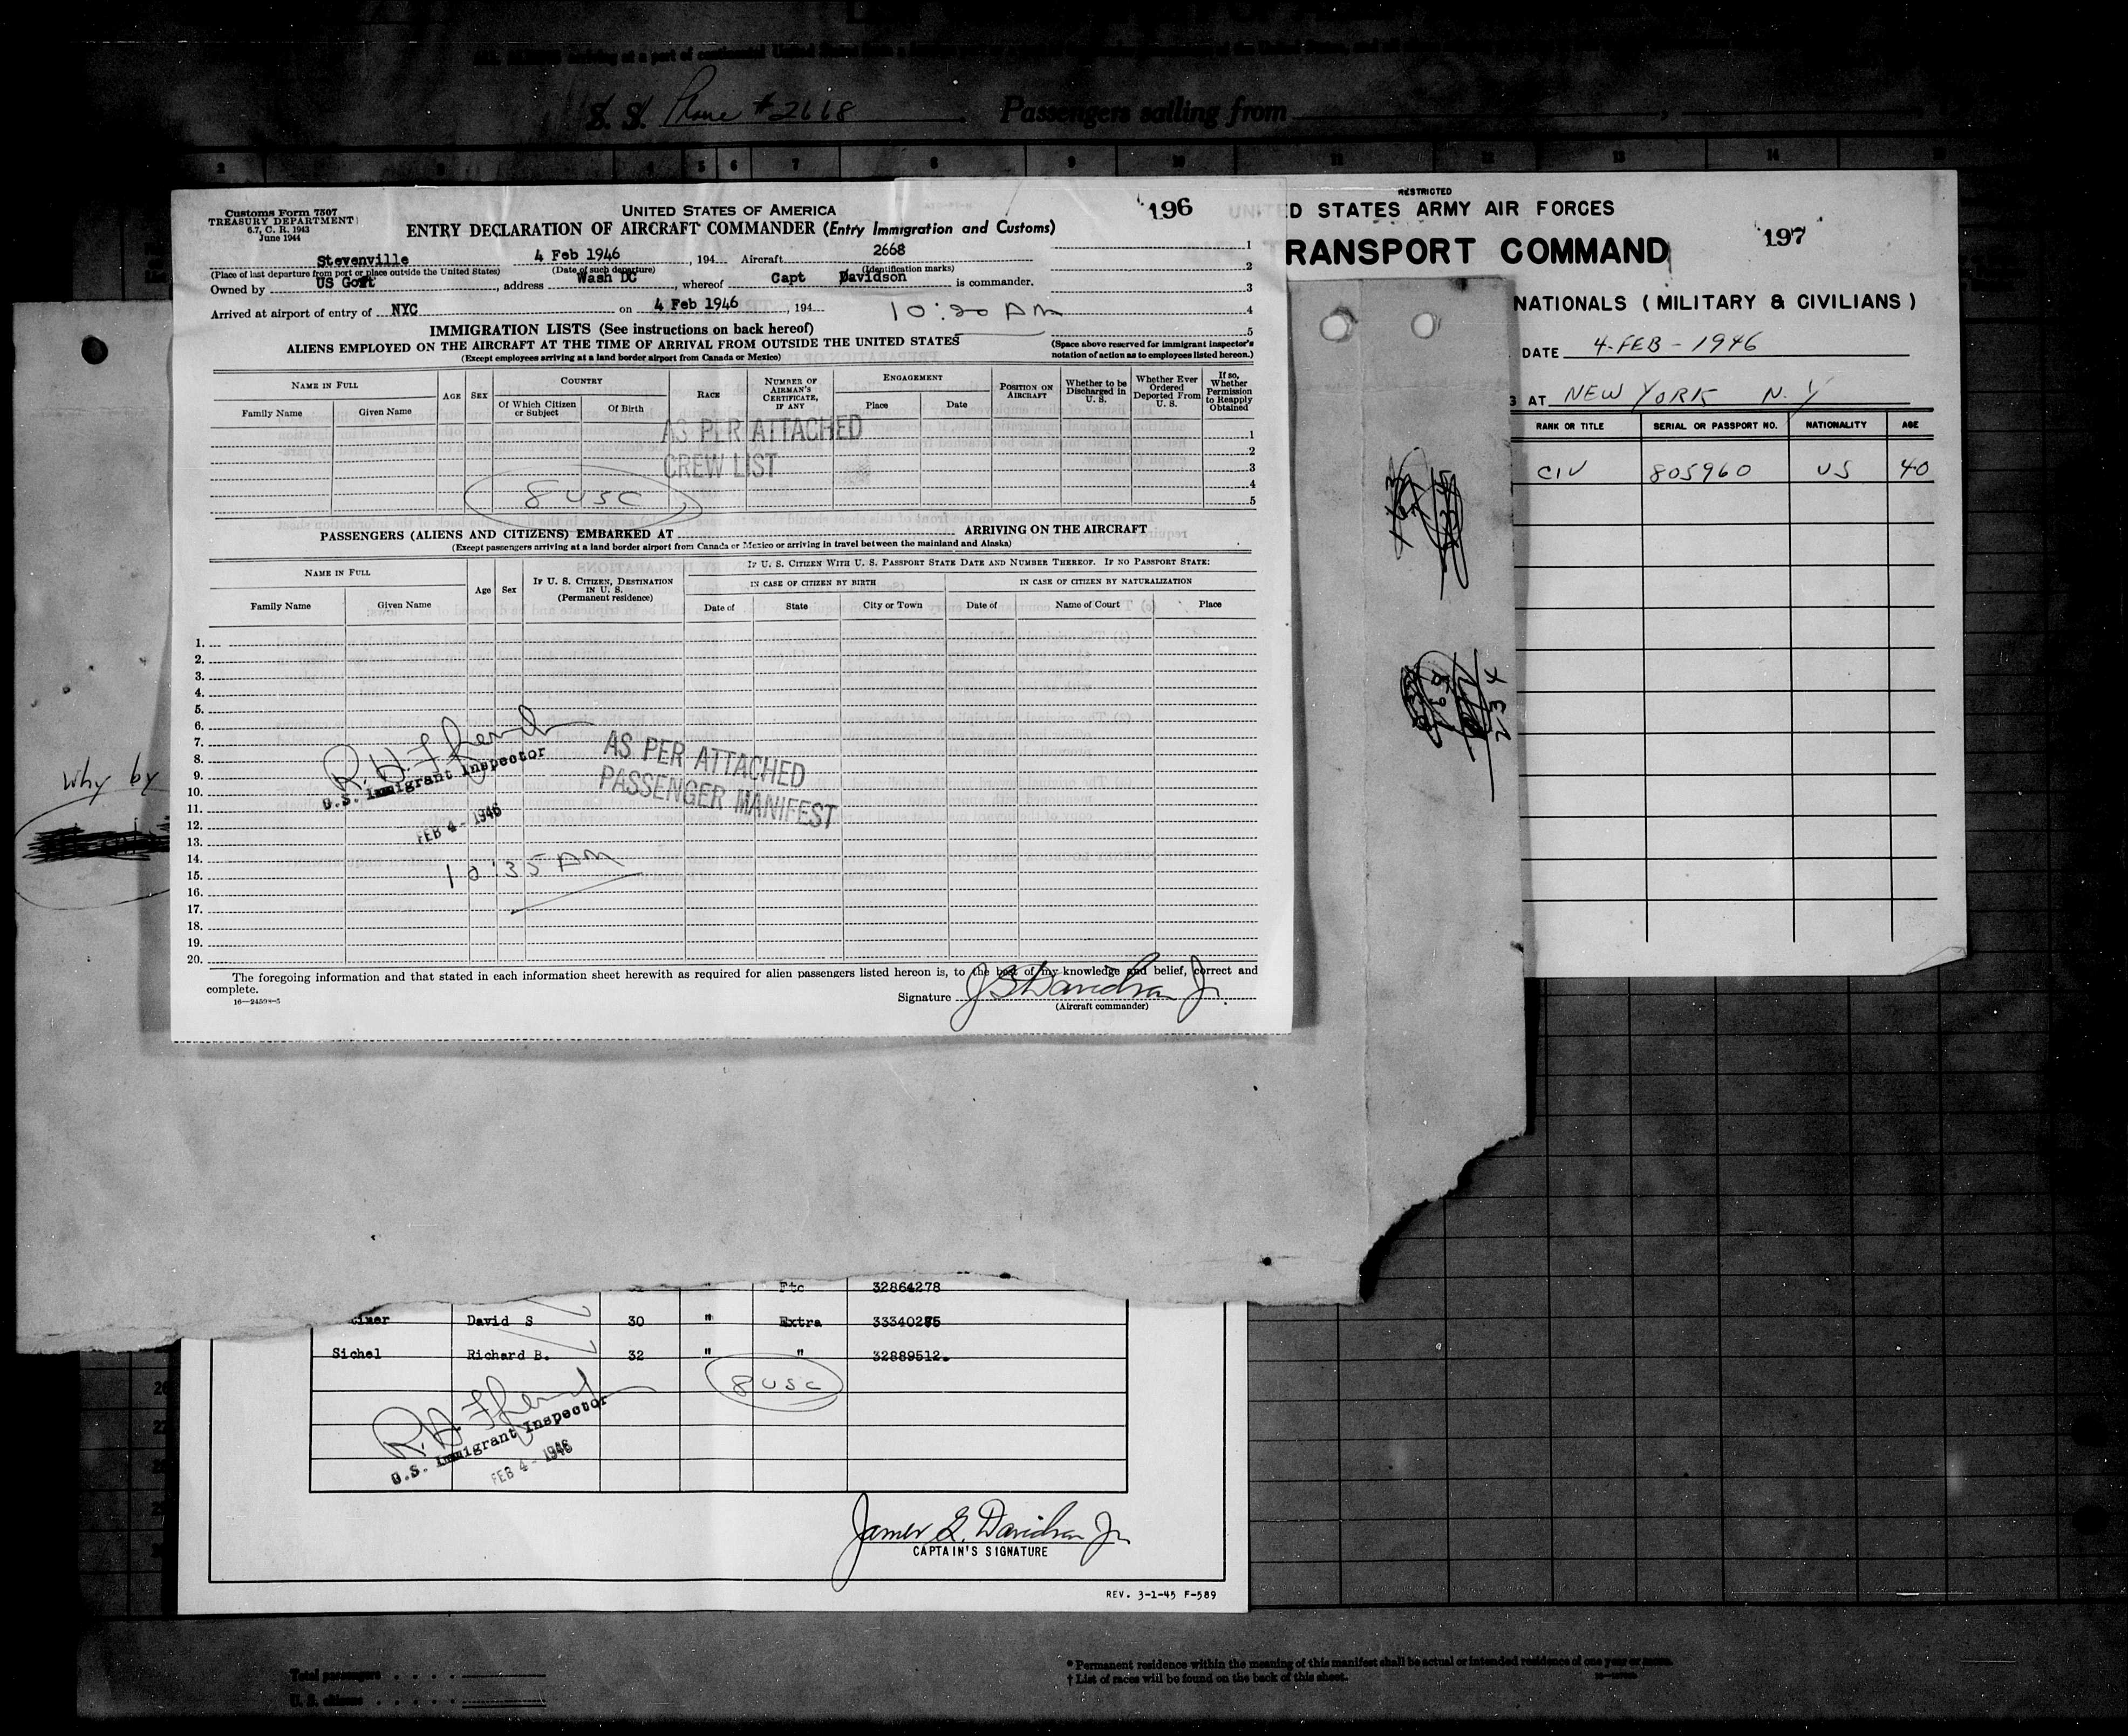 S. S. Plane #2668 Passengers sailing from
2 3 4 5 6 7 8 9 10 11 12 13 14
Customs Form 7507
TREASURY DEPARTMENT
6.7, C. R. 1943
June 1944
UNITED STATES OF AMERICA
196
ENTRY DECLARATION OF AIRCRAFT COMMANDER (Entry Immigration and Customs)
Stevenville 4 Feb 1946, 194.... Aircraft 2668
(Place of last departure from port or place outside the United States) (Date of such departure) (Identification marks)
Owned by US Govt, address Wash DC, whereof Capt Davidson is commander.
Arrived at airport of entry of NYC on 4 Feb 1946, 194.... 10:20 AM
1
2
3
4
5
IMMIGRATION LISTS (See instructions on back hereof)
ALIENS EMPLOYED ON THE AIRCRAFT AT THE TIME OF ARRIVAL FROM OUTSIDE THE UNITED STATES
(Except employees arriving at a land border airport from Canada or Mexico)
(Space above reserved for immigrant inspector's
notation of action as to employees listed hereon.)
NAME IN FULL
Family Name Given Name
AGE SEX
COUNTRY
Of Which Citizen or Subject Of Birth
RACE
NUMBER OF AIRMAN'S CERTIFICATE, IF ANY
ENGAGEMENT
Place Date
POSITION ON AIRCRAFT
Whether to be Discharged in U. S.
Whether Ever Ordered Deported From U. S.
If so, Whether Permission to Reapply Obtained
AS PER ATTACHED
CREW LIST
8 USC
1
2
3
4
5
PASSENGERS (ALIENS AND CITIZENS) EMBARKED AT ARRIVING ON THE AIRCRAFT
(Except passengers arriving at a land border airport from Canada or Mexico or arriving in travel between the mainland and Alaska)
NAME IN FULL
Family Name Given Name
Age Sex
IF U. S. CITIZEN, DESTINATION IN U. S.
(Permanent residence)
IF U. S. CITIZEN WITH U. S. PASSPORT STATE DATE AND NUMBER THEREOF. IF NO PASSPORT STATE:
IN CASE OF CITIZEN BY BIRTH IN CASE OF CITIZEN BY NATURALIZATION
Date of State City or Town Date of Name of Court Place
1.
2.
3.
4.
5.
6.
7.
8.
9.
10.
11.
12.
13.
14.
15.
16.
17.
18.
19.
20.
R. H.
U.S. Immigrant Inspector
FEB 4 - 1946
10:35 AM
AS PER ATTACHED
PASSENGER MANIFEST
The foregoing information and that stated in each information sheet herewith as required for alien passengers listed hereon is, to the best of my knowledge and belief, correct and
complete.
16—24598-5
Signature J G Davidson Jr.
(Aircraft commander)
why by
234
RESTRICTED
UNITED STATES ARMY AIR FORCES
197
RANSPORT COMMAND
NATIONALS (MILITARY & CIVILIANS)
DATE 4-FEB-1946
AT NEW YORK N.Y
RANK OR TITLE SERIAL OR PASSPORT NO. NATIONALITY AGE
CIV 805960 US 40
32864278
David S 30 " Extra 33340285
Sichel Richard B. 32 " " 32889512.
8 USC
R. H.
U.S. Immigrant Inspector
FEB 4 - 1946
James G. Davidson Jr
CAPTAIN'S SIGNATURE
REV. 3-1-45 F-589
Total passengers
U. S. citizens
* Permanent residence within the meaning of this manifest shall be actual or intended residence of one year or more.
† List of races will be found on the back of this sheet.